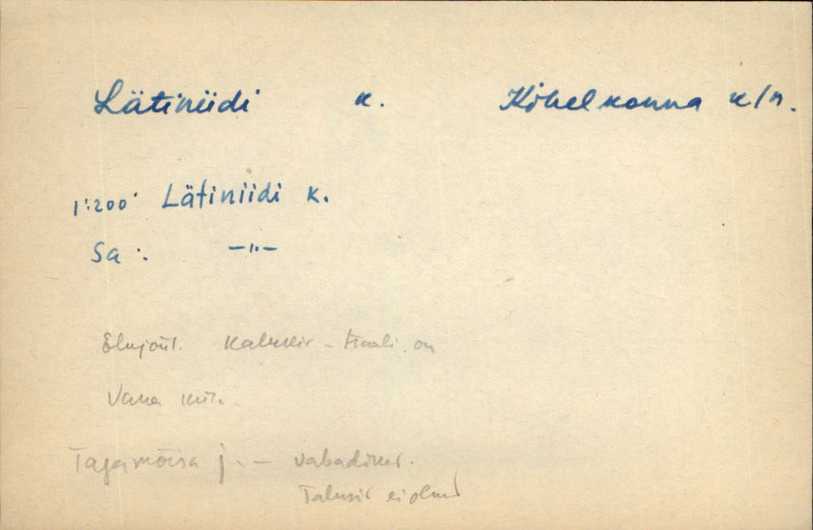 Lätiniidi k. Kihelkonna k/n.
1:200 Lätiniidi k.
Sa: —"—
Elujõul. on
Vana
Tagamõisa j. — vabadiker.
Talusid ei olnud